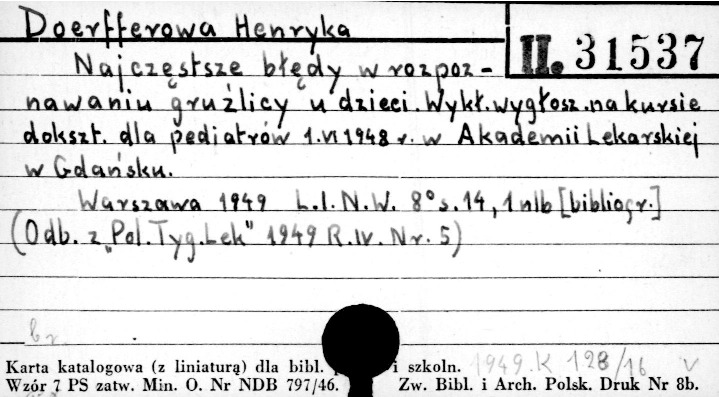 Doerfferowa Henryka
II. 31537
Najczęstsze błędy w rozpoz-
nawaniu gruźlicy u dzieci. Wykł. wygłosz. na kursie
dokszt. dla pediatrów 1.VI 1948 r. w Akademii Lekarskiej
w Gdańsku.
Warszawa 1949 L.I.N.W. 8° s. 14, 1 nlb [bibliogr.]
(Odb. z „Pol. Tyg. Lek" 1949 R. IV. Nr. 5)
br.
1949. K 128/16 v
Karta katalogowa (z liniaturą) dla bibl. i szkoln.
Wzór 7 PS zatw. Min. O. Nr NDB 797/46. Zw. Bibl. i Arch. Polsk. Druk Nr 8b.